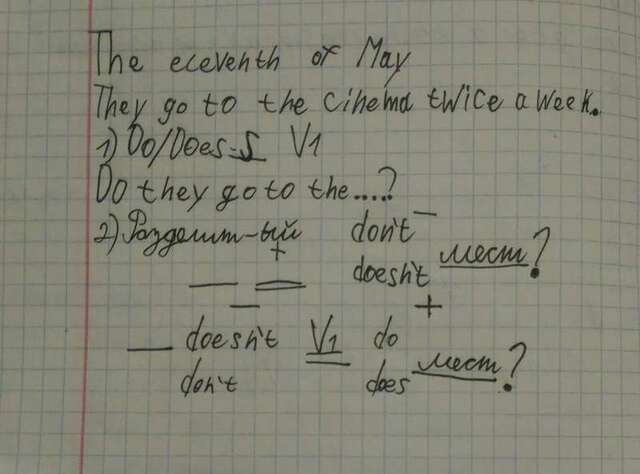 The eleventh of May
They go to the cinema twice a week.
1) Do/Does-S V1
Do they go to the....?
2) Разделит-ый don't -
+ doesn't мест?
- +
doesn't V1 do
don't does мест?